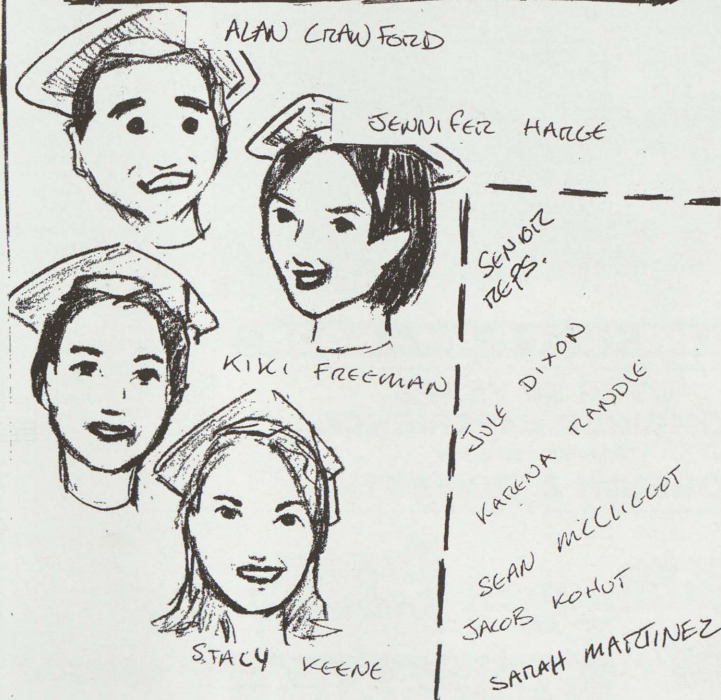 ALAN CRAWFORD
JENNIFER HARGE
KIKI FREEMAN
STACY KEENE
SENOIR
REPS.
JULE DIXON
KARENA RANDLE
SEAN McCLIGGOT
JACOB KOHUT
SARAH MARTINEZ